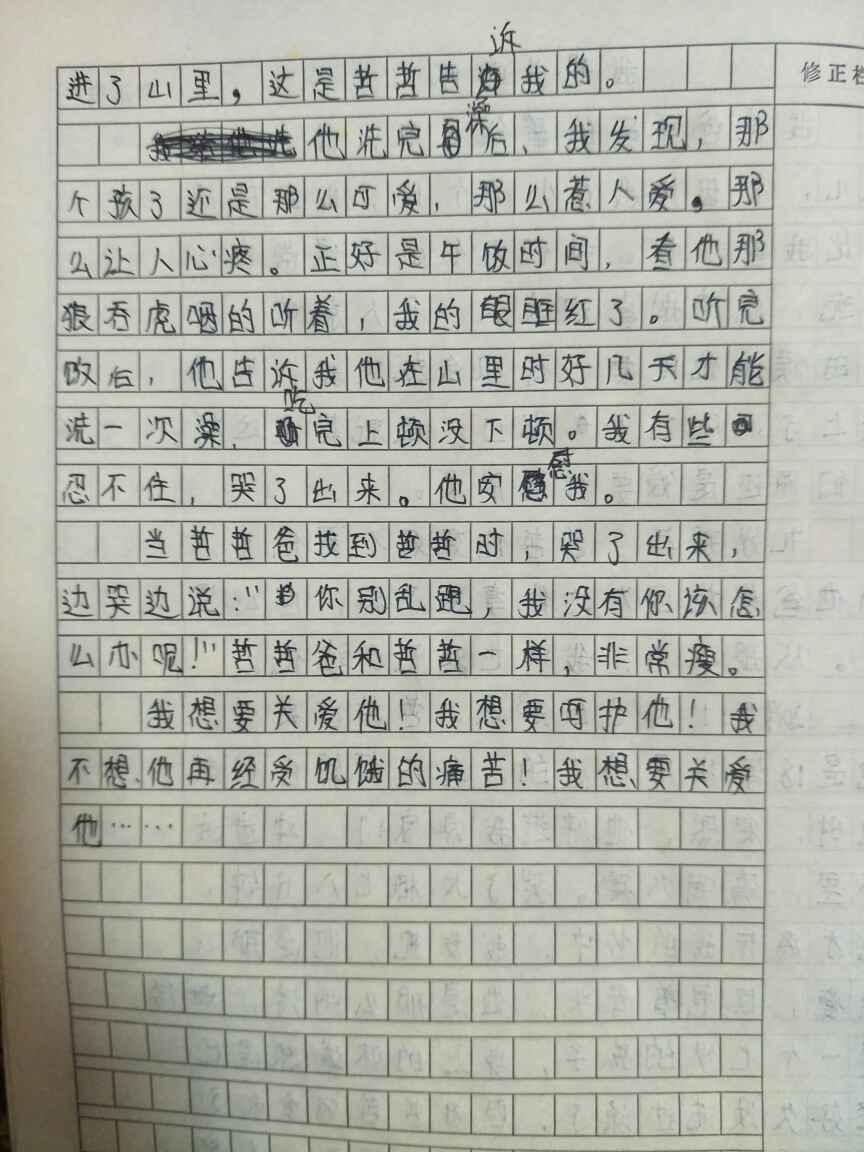 修正栏
进了山里，这是哲哲告诉我的。
他洗完澡后，我发现，那
个孩子还是那么可爱，那么惹人爱。那
么让人心疼。正好是午饭时间，看他那
狼吞虎咽的听着，我的眼眶红了。听完
饭后，他告诉我他在山里时好几天才能
洗一次澡，吃完上顿没下顿。我有些
忍不住，哭了出来。他安慰我。
当哲哲爸找到哲哲时，哭了出来，
边哭边说："你别乱跑，我没有你该怎
么办呢！"哲哲爸和哲哲一样，非常瘦。
我想要关爱他！我想要呵护他！我
不想他再经受饥饿的痛苦！我想要关爱
他……